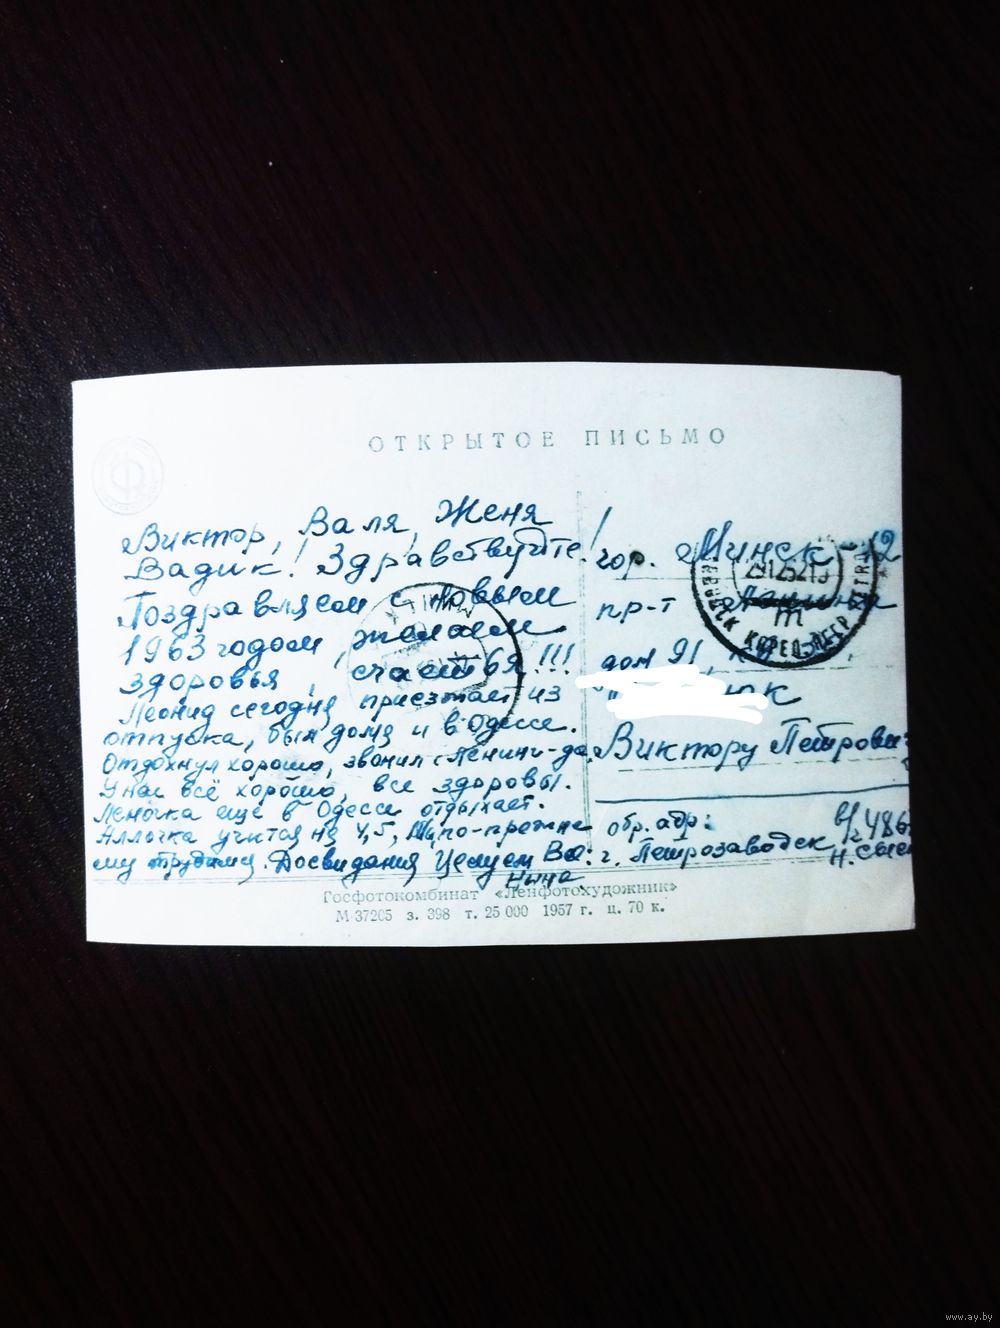 ОТКРЫТОЕ ПИСЬМО
Виктор, Валя, Женя
Вадик! Здравствуйте!
Поздравляем с новым
1963 годом, желаем
здоровья, счастья!!!
Леонид сегодня приезжает из
отпуска, был дома и в Одессе.
Отдохнул хорошо, звонил с Ленинг-да.
У нас всё хорошо, все здоровы.
Леночка ещё в Одессе отдыхает.
Аллочка учится на 4,5, Мы по-прежне
му трудимся. Досвидания Целуем Вас.
Нина
гор. Минск-12
пр-т Ленина
дом 91,
юк
Виктору Петрович
обр. адр: в/ч 486
г. Петрозаводск
Госфотокомбинат «Ленфотохудожник»
М-37205 з. 398 т. 25 000 1957 г. ц. 70 к.
www.ay.by